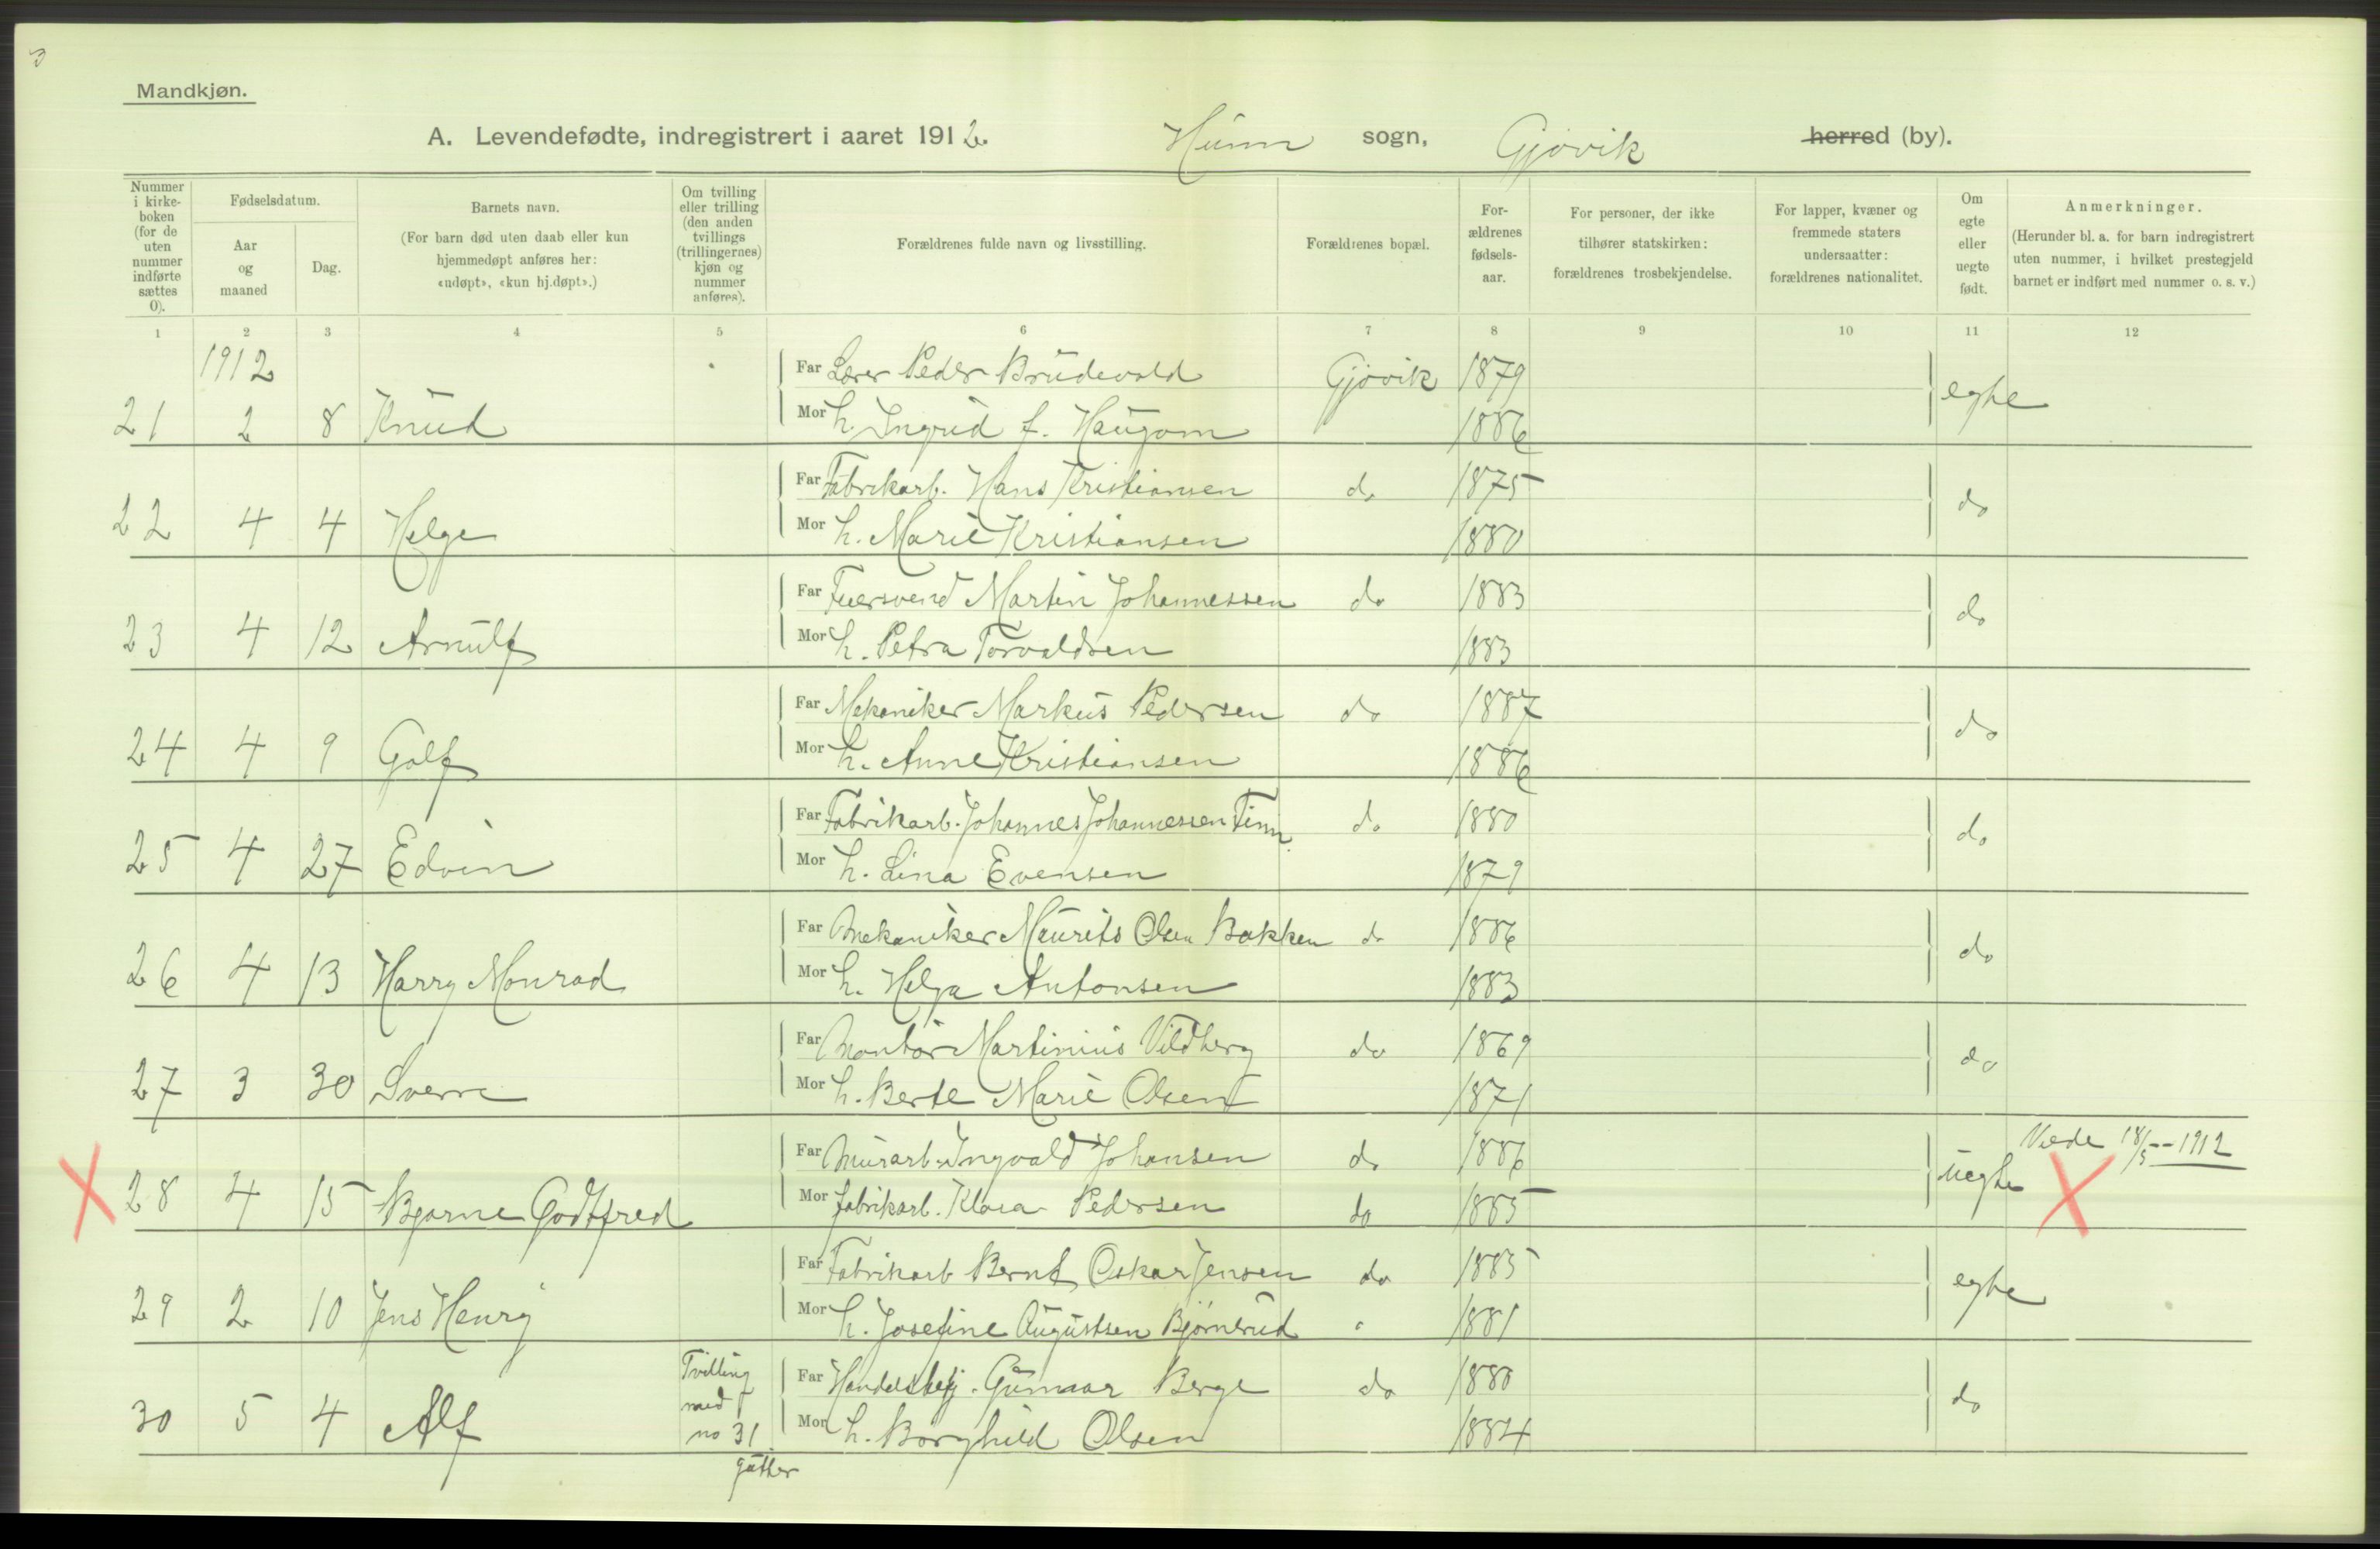 Mandkjøn.
A. Levendefødte, indregistrert i aaret 1912. Hunn sogn, Gjøvik herred (by).
Nummer i kirke-boken (for de uten nummer indførte sættes 0).
Fødselsdatum.
Aar og maaned
Dag.
Barnets navn.
(For barn død uten daab eller kun hjemmedøpt anføres her: «udøpt», «kun hj.døpt».)
Om tvilling eller trilling (den anden tvillings (trillingernes) kjøn og nummer anføres).
Forældrenes fulde navn og livsstilling.
Forældrenes bopæl.
For-ældrenes fødsels-aar.
For personer, der ikke tilhører statskirken: forældrenes trosbekjendelse.
For lapper, kvæner og fremmede staters undersaatter: forældrenes nationalitet.
Om egte eller uegte født.
Anmerkninger.
(Herunder bl. a. for barn indregistrert uten nummer, i hvilket prestegjeld barnet er indført med nummer o. s. v.)
1 2 3 4 5 6 7 8 9 10 11 12
1912
Far Lærer Peder Brudevold Gjøvik 1879
21 2 8 Knud Mor h. Ingrid f. Haugom 1886 egte
Far Fabrikarb. Hans Kristiansen do 1875
22 4 4 Helge Mor h. Marie Kristiansen 1880 do
Far Fuersvend Martin Johannessen do 1883
23 4 12 Arnulf Mor h. Petra Torvaldsen 1883 do
Far Mekaniker Markus Pedersen do 1887
24 4 9 Golf Mor h. Anne Kristiansen 1886 do
Far Fabrikarb. Johannes Johannessen Finn do 1880
25 4 27 Edvin Mor h. Lina Evensen 1879 do
Far Mekaniker Maurits Olsen Bakken do 1886
26 4 13 Harry Monrad Mor h. Helga Antonsen 1883 do
Far Montør Martinius Vildberg do 1869
27 3 30 Sverre Mor h. Berte Marie Olsen 1871 do
Far Murarb. Ingvald Johansen do 1886 18/5--1912
28 4 15 Bjarne Godtfred Mor fabrikarb. Klara Pedersen do 1885 uegte
Far Fabrikarb Bernt Oskar Jensen do 1885
29 2 10 Jens Henry Mor h. Josefine Augustsen Bjørnerud " 1881 egte
Tvilling med no 31 gutter
Far Handelsbetj. Gunnar Berge do 1880
30 5 4 Alf Mor h. Borghild Olsen 1884 do